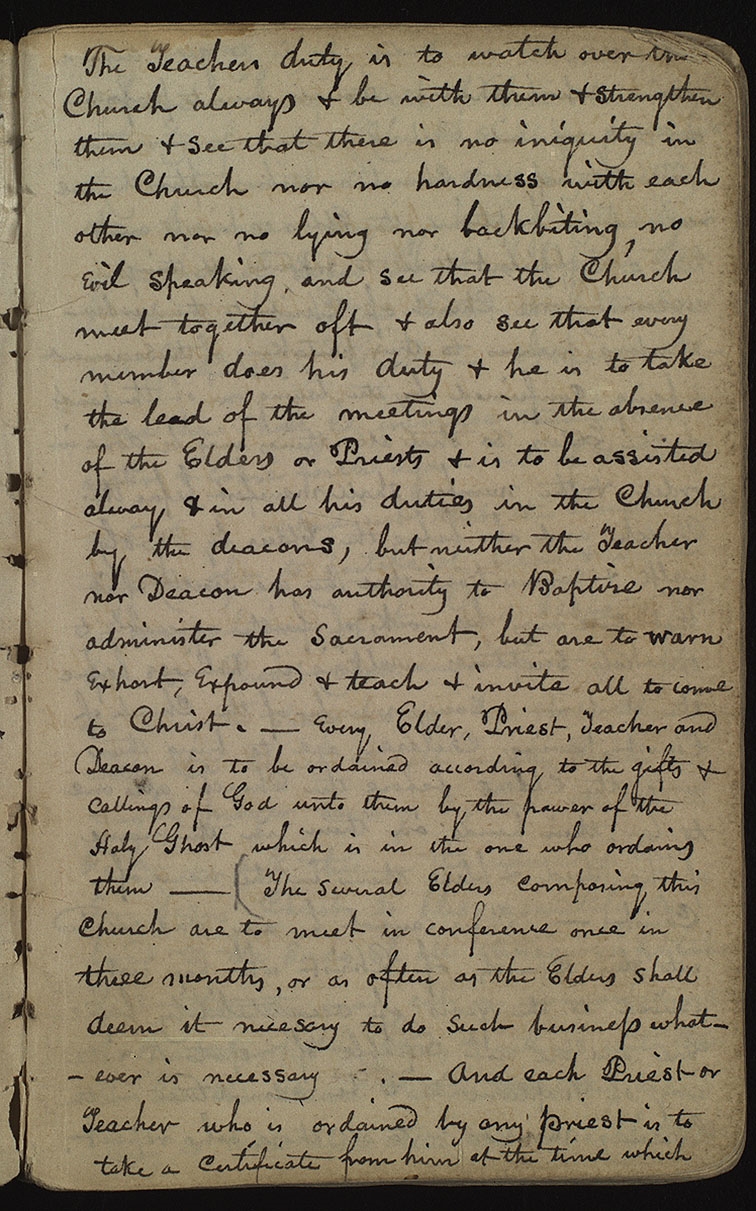 The Teachers duty is to watch over the
Church always & be with them & strengthen
them & see that there is no iniquity in
the Church nor no hardness with each
other nor no lying nor backbiting, no
Evil speaking, and see that the Church
meet together oft & also see that every
member does his duty & he is to take
the lead of the meetings in the absence
of the Elders or Priests & is to be assisted
alway & in all his duties in the Church
by the deacons, but neither the Teacher
nor Deacon has authority to Baptise nor
administer the Sacrament, but are to warn
Exhort, Expound & teach & invite all to come
to Christ. — Every Elder, Priest, Teacher and
Deacon is to be ordained according to the gifts &
callings of God unto them by the power of the
Holy Ghost which is in the one who ordains
them — ( The several Elders composing this
Church are to meet in conference once in
three months, or as often as the Elders shall
deem it necesary to do such business what-
-ever is necessary - . — And each Priest or
Teacher who is ordained by any priest is to
take a certificate from him at the time which